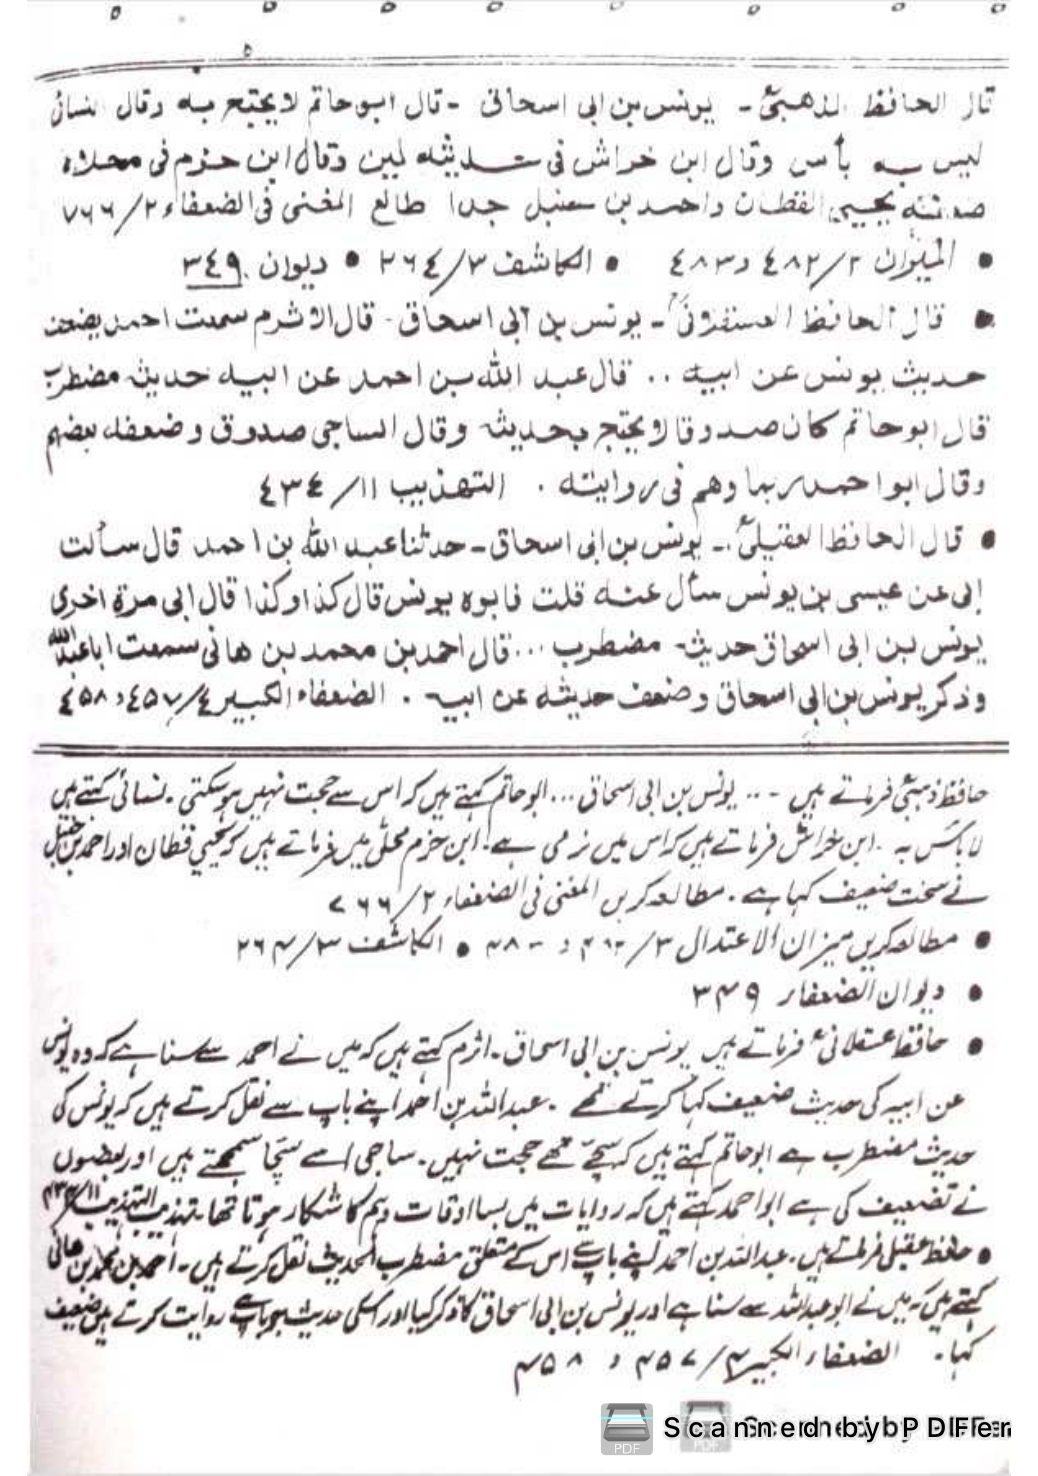 قال الحافظ الذهبیؒ ـ یونس بن ابی اسحاق ـ قال ابو حاتم لا یحتج به وقال النسائی
لیس به بأس وقال ابن خراش فی حدیثه لین وقال ابن حزم فی محلاه
ضعفه یحیی القطان واحمد بن حنبل جدا طالع المغنی فی الضعفاء ۲/۷۶۶
• المیزان ۴۸۲/۲ و ۴۸۳ • الکاشف ۲۶٤/۳ • دیوان ۳٤۹
• قال الحافظ العسقلانیؒ ـ یونس بن ابی اسحاق ـ قال الاثرم سمعت احمد یضعف
حدیث یونس عن ابیه .. قال عبد الله بن احمد عن ابیه حدیثه مضطرب
قال ابو حاتم کان صدوقا لا یحتج بحدیثه وقال الساجی صدوق و ضعفه بعضهم
وقال ابو احمد ربما وهم فی روایته . التهذیب ۱۱/ ٤۳٤
• قال الحافظ العقیلیؒ ـ یونس بن ابی اسحاق ـ حدثنا عبد الله بن احمد قال سألت
ابی عن عیسی بن یونس سأل عنه قلت فابوه یونس قال کذا وکذا قال ابی مرة اخری
یونس بن ابی اسحاق حدیثه مضطرب ... قال احمد بن محمد بن هانی سمعت ابا عبد الله
وذکر یونس بن ابی اسحاق وضعف حدیثه عن ابیه . الضعفاء الکبیر ٤/٤۵۷ و ٤۵۸
حافظ ذہبیؒ فرماتے ہیں ۔ .. یونس بن ابی اسحاق ... ابو حاتم کہتے ہیں کہ اس سے حجت نہیں ہو سکتی ۔ نسائی کہتے ہیں
لا بأس بہ ۔ ابن خراش فرماتے ہیں کہ اس میں نرمی ہے ۔ ابن حزم محلّی میں فرماتے ہیں کہ یحیی قطان اور احمد بن حنبل
نے سخت ضعیف کہا ہے ۔ مطالعہ کریں المغنی فی الضعفاء ۲/ ۷۶۶
• مطالعہ کریں میزان الاعتدال • الکاشف ۳/ ۲۶۴
• دیوان الضعفاء ۳۴۹
• حافظ عسقلانیؒ فرماتے ہیں یونس بن ابی اسحاق ۔ اثرم کہتے ہیں کہ میں نے احمد سے سنا ہے کہ وہ یونس
عن ابیہ کی حدیث ضعیف کہا کرتے تھے ۔ عبداللہ بن احمد اپنے باپ سے نقل کرتے ہیں کہ یونس کی
حدیث مضطرب ہے ابو حاتم کہتے ہیں کہ سچّے تھے حجت نہیں ۔ ساجی اسے سچّا سمجھتے ہیں اور بعضوں
نے تضعیف کی ہے ابو احمد کہتے ہیں کہ روایات میں بسا اوقات وہم کا شکار ہوتا تھا ۔ تہذیب التہذیب ۱۱/۴۳۴
• حافظ عقیلی فرماتے ہیں ۔ عبداللہ بن احمد اپنے باپ سے اس کے متعلق مضطرب الحدیث نقل کرتے ہیں ۔ احمد بن محمد بن ھانی
کہتے ہیں کہ میں نے ابو عبداللہ سے سنا ہے اور یونس بن ابی اسحاق کا ذکر کیا اور اسکی حدیث جو باپ سے روایت کرتے ہیں ضعیف
کہا ۔ الضعفاء الکبیر ۴/ ۴۵۷ و ۴۵۸
PDF Scanned by PDFer